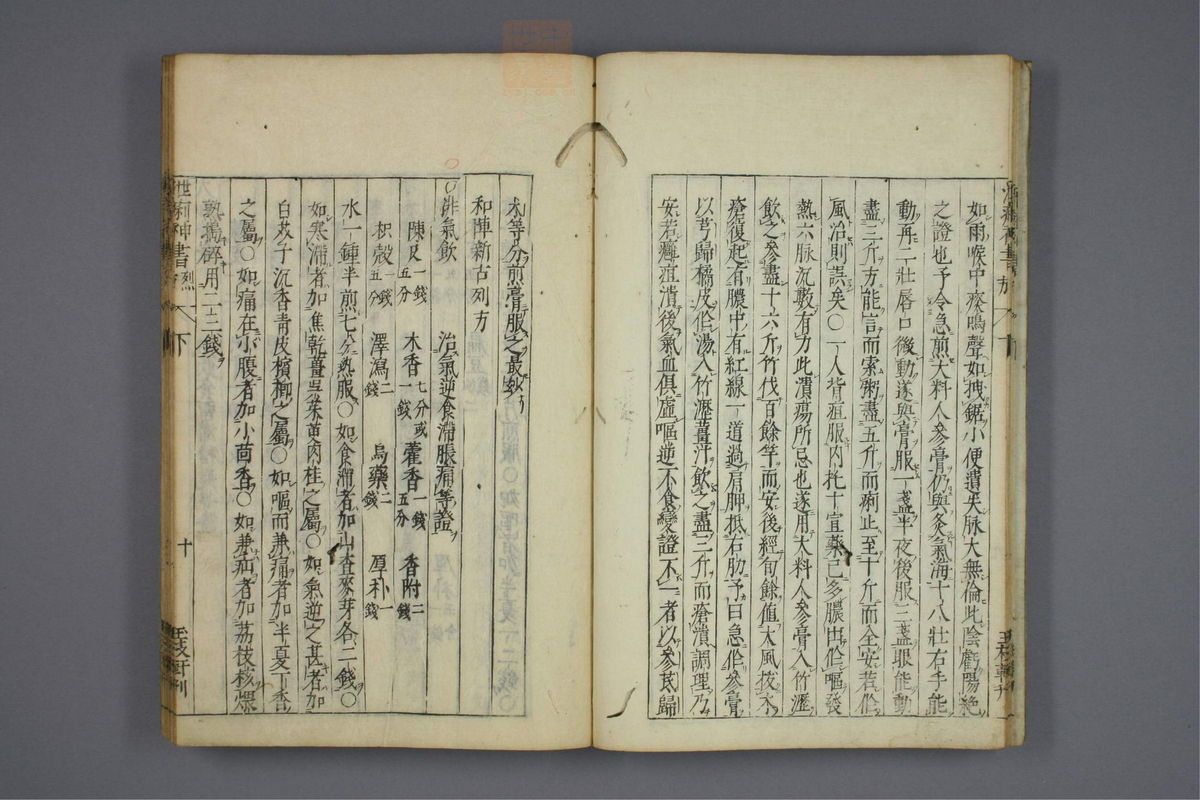 如雨喉中痰鳴聲如拽鋸小便遺失脉大無倫此陰虧陽絶
之證也予令急煎大料人參膏仍與灸氣海十八壯右手能
動再二壯唇口微動遂與膏服一盞半夜後服三盞眼能動
盡三斤方能言而索粥盡五斤而痢止至十斤而全安若作
風治則誤矣○一人背疽服内托十宣藥已多膿出作嘔發
熱六脉沉數有力此潰瘍所忌也遂用大料人參膏入竹瀝
飲之參盡十六斤竹伐百餘竿而安後經旬餘值大風拔木
瘡復起有膿中有紅線一道過肩胛抵右肋予曰急作參膏
以芎歸橘皮作湯入竹瀝薑汁飲之盡三斤而瘡潰調理乃
安若癰疽潰後氣血俱虛嘔逆不食變證不一者以參芪歸
术等分煎膏服之最妙
和陣新古列方
○排氣飲 治氣逆食滯脹痛等證
陳皮一錢五分 木香七分或一錢 藿香一錢五分 香附二錢
枳殼一錢五分 澤瀉二錢 烏藥二錢 厚朴一錢
水一鍾半煎七分熱服○如食滯者加山查麥芽各二錢○
如寒滯者加焦乾薑吳茱萸肉桂之屬○如氣逆之甚者加
白芥子沉香青皮檳榔之屬○如嘔而兼痛者加半夏丁香
之屬○如痛在小腹者加小茴香○如兼疝者加荔枝核煨
熟搗碎用二三錢
神書 下 十